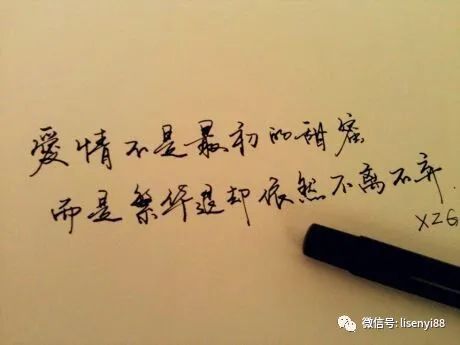 愛情不是最初的甜蜜
而是繁华退却依然不离不弃.
XZG
微信号: lisenyi88